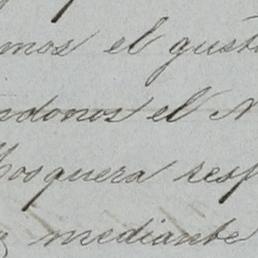 mos el gust
ndonos el N
osquera resp
mediante